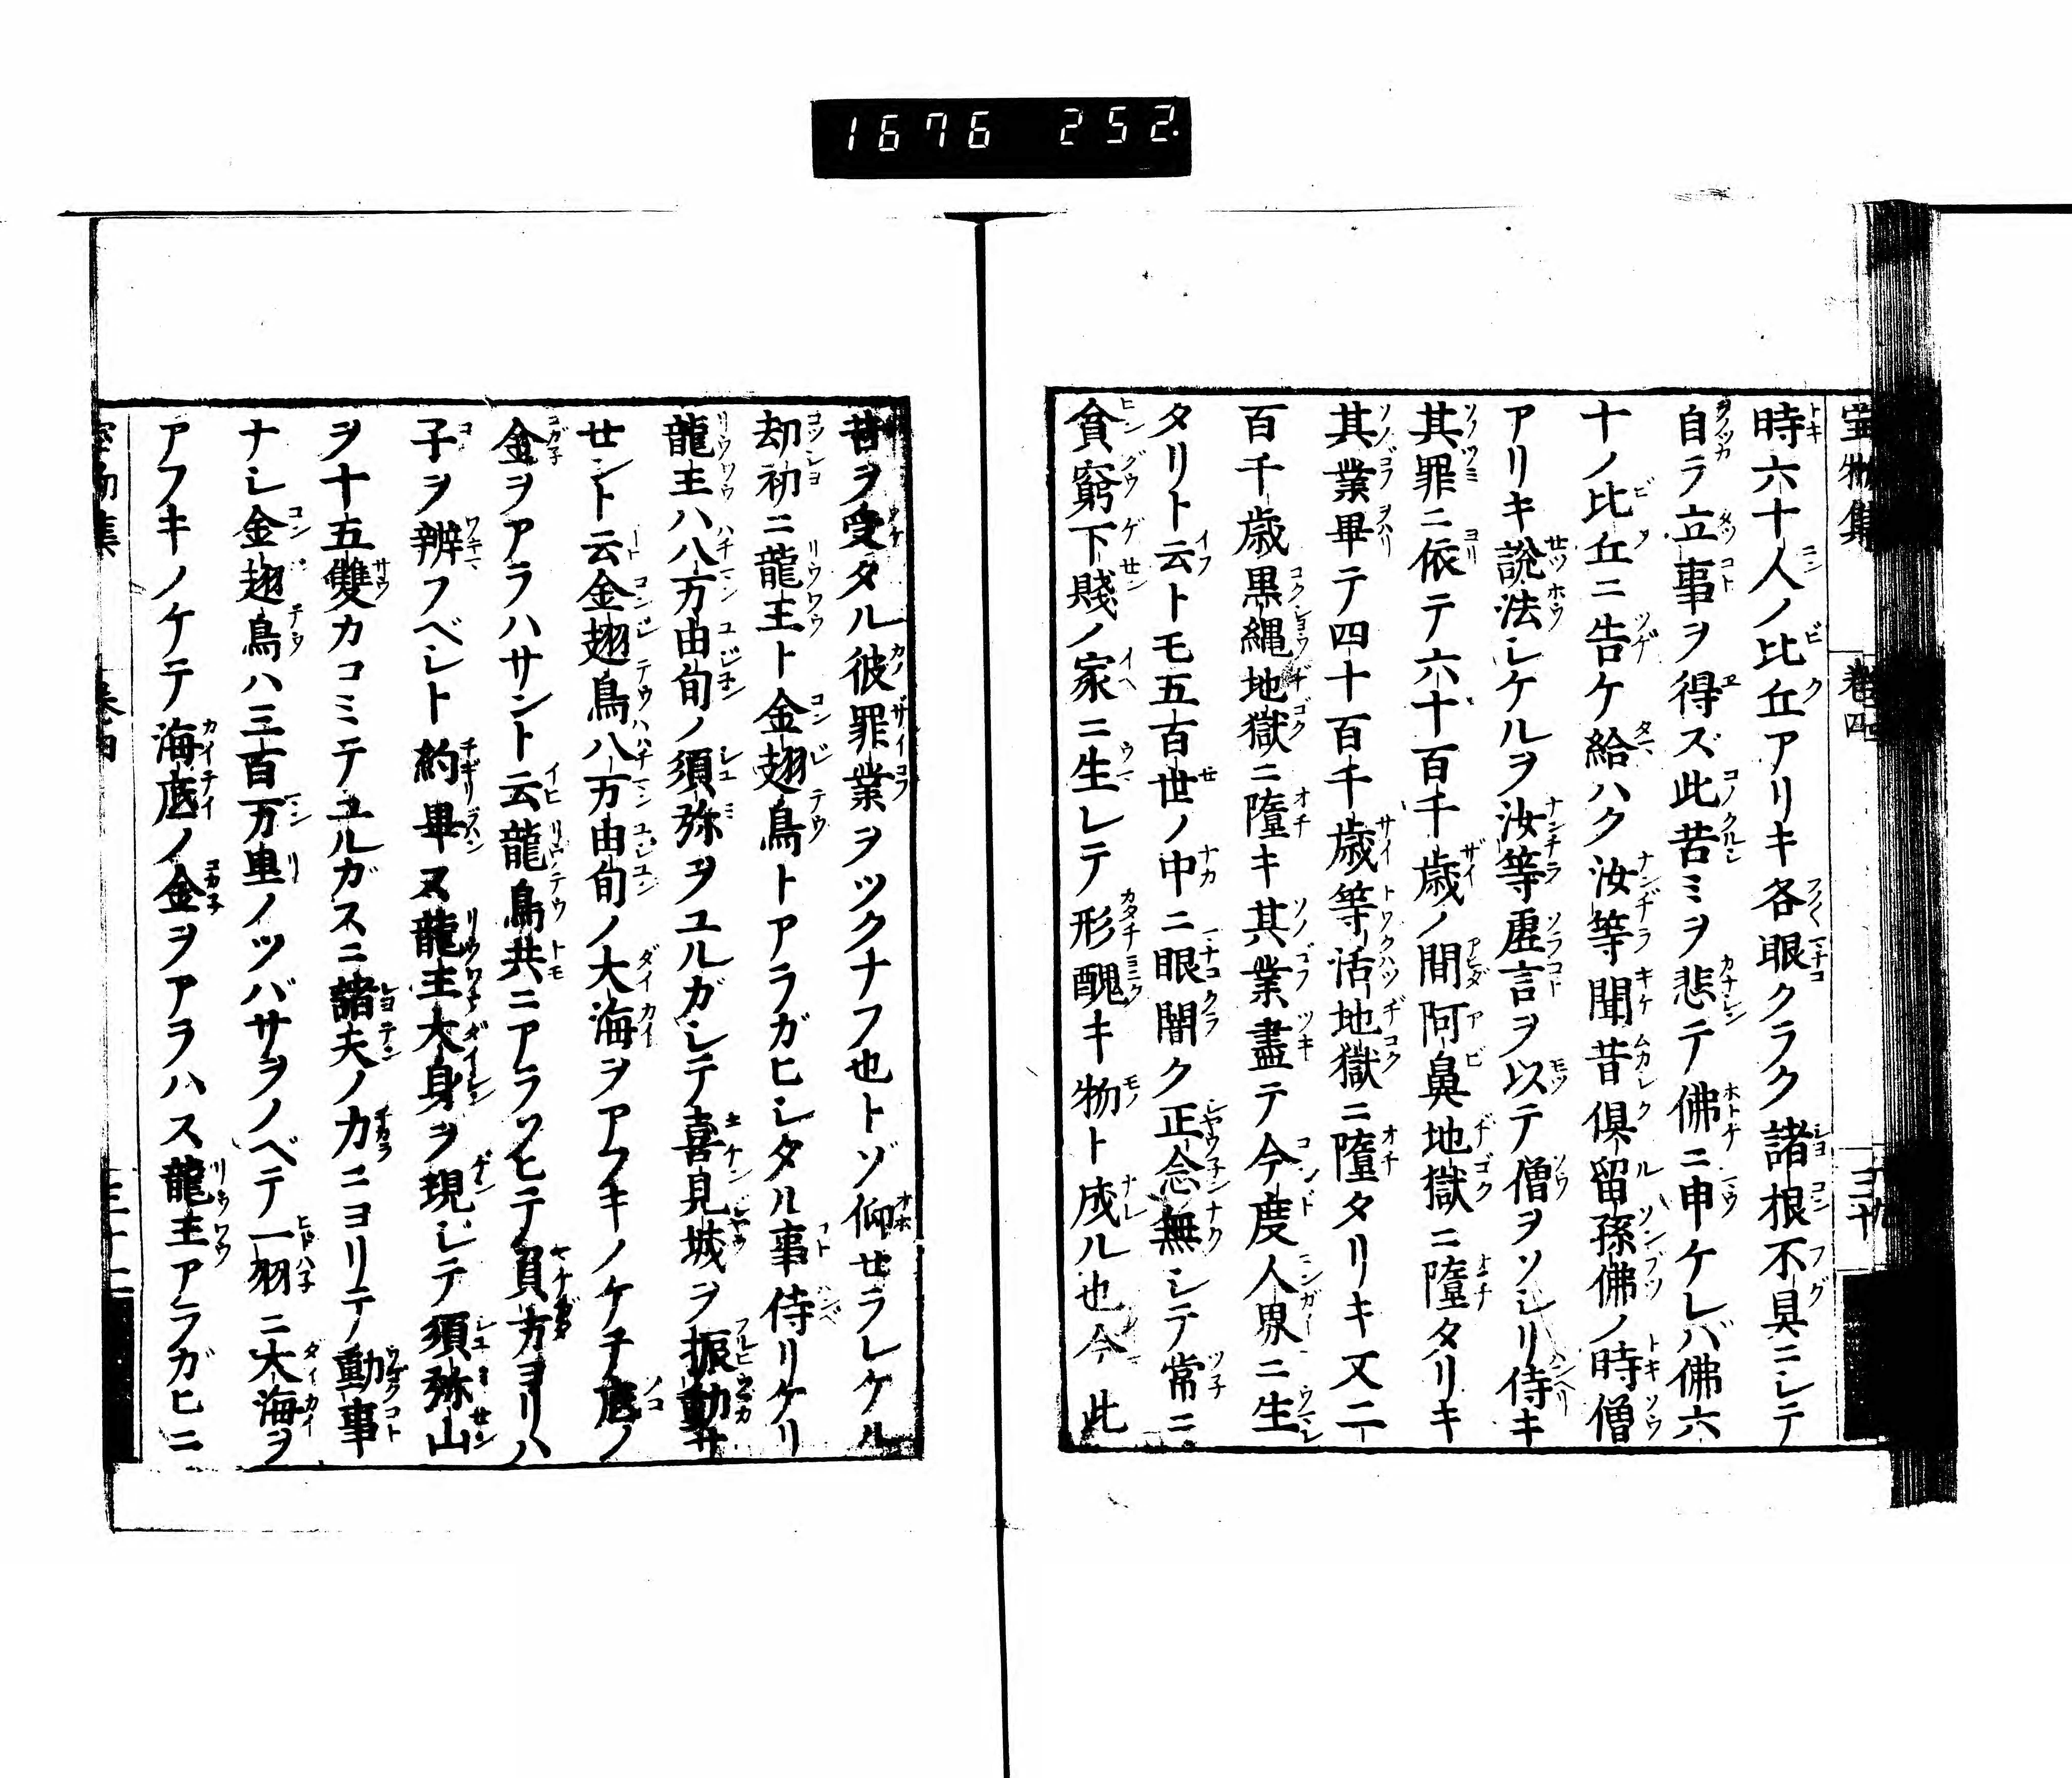 1676 252.
宝物集 巻四
時六十人ノ比丘アリキ各眼クラク諸根不具ニシテ
自ラ立事ヲ得ズ此苦ミヲ悲テ佛ニ申ケレバ佛六
十ノ比丘ニ告ケ給ハク汝等聞昔倶留孫佛ノ時僧
アリキ說法シケルヲ汝等虚言ヲ以テ僧ヲソシリ侍キ
其罪ニ依テ六十百千歳ノ間阿鼻地獄ニ墮タリキ
其業畢テ四十百千歳等活地獄ニ墮タリキ又二
百千歳黒縄地獄ニ墮キ其業盡テ今度人界ニ生
タリト云トモ五百世ノ中ニ眼闇ク正念無シテ常ニ
貧窮下賤ノ家ニ生レテ形醜キ物ト成ル也今此
昔ヲ受タル彼罪業ヲツクナフ也トゾ仰セラレケル
劫初ニ龍王ト金翅鳥トアラガヒシタル事侍リケリ
龍王ハ八万由旬ノ須弥ヲユルガシテ喜見城ヲ振動サ
セント云金翅鳥八万由旬ノ大海ヲアフキノケテ底ノ
金ヲアラハサント云龍鳥共ニアラソヒテ負方ヨリハ
子ヲ辨フベシト約畢ヌ龍王大身ヲ現シテ須弥山
ヲ十五雙カコミテユルガスニ諸天ノ力ニヨリテ動事
ナシ金翅鳥ハ三百万里ノツバサヲノベテ一羽ニ大海ヲ
アフキノケテ海底ノ金ヲアラハス龍王アラガヒニ